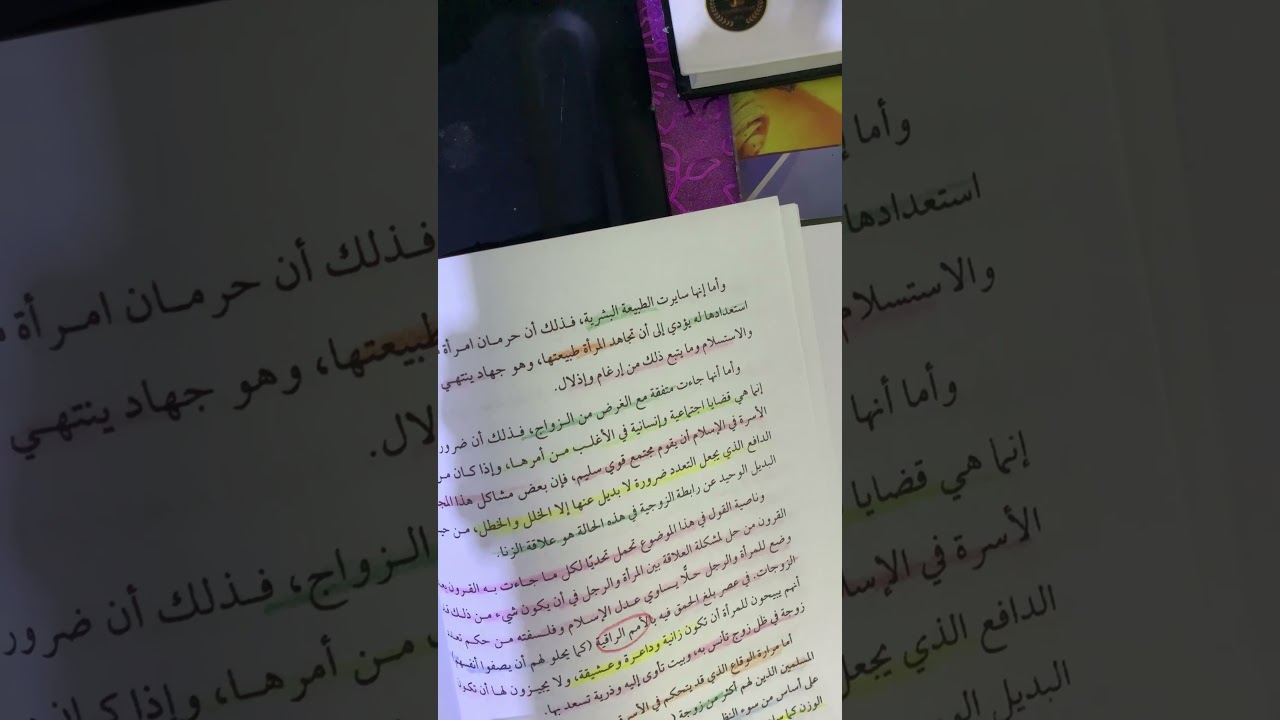 وأما إنها سايرت الطبيعة البشرية، فذلك أن حرمان امرأة
استعدادها له يؤدي إلى أن تجاهد المرأة طبيعتها، وهو جهاد ينتهي
والاستسلام وما يتبع ذلك من إرغام وإذلال.
وأما أنها جاءت متفقة مع الغرض من الزواج، فذلك أن ضرور
إنما هي قضايا اجتماعية وإنسانية في الأغلب من أمرها، وإذا كان
الأسرة في الإسلام أن يقوم مجتمع قوي سليم، فإن بعض مشاكل هذا
الدافع الذي يجعل التعدد ضرورة لا بديل عنها إلا الخلل والخطل، من
البديل الوحيد عن رابطة الزوجية في هذه الحالة هو علاقة الزنا.
وناصية القول في هذا الموضوع تحمل تحديًا لكل ما جاءت به القرون
القرون من حل لمشكلة العلاقة بين المرأة والرجل في أن يكون شيء من ذلك
وضع للمرأة والرجل حلًّا يساوي عدل الإسلام وفلسفته من حكم
الزوجات. في عصر بلغ الحمق فيه بالأمم الراقية (كما يحلو لهم أن يصفوا أنفسهم)
أنهم يبيحون للمرأة أن تكون زانية وداعرة وعشيقة، ولا يجيزون لها أن تكون
زوجة في ظل زوج تأنس به، وبيت تأوى إليه وذرية تسعد بها.
أما مرارة الوقاع الذي قد يتحكم في الأسرة
المسلمين الذين لهم أكثر من زوجة
على أساس من سوء
الوزن كما